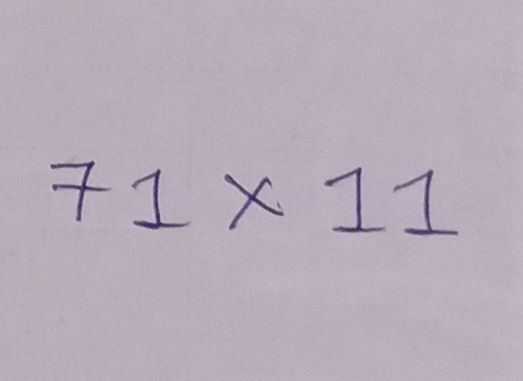 71 × 11